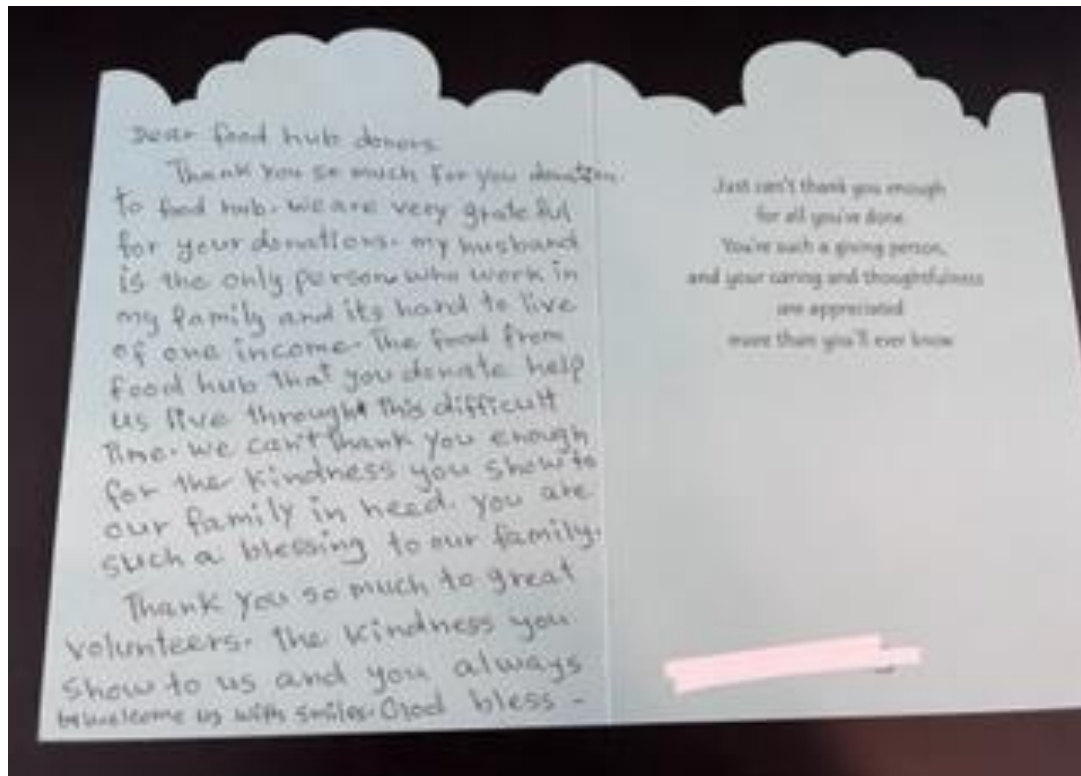 Dear food hub donors
Thank you so much for you donation
to food hub. we are very grateful
for your donations. my husband
is the only person who work in
my family and its hard to live
of one income. The food from
food hub that you donate help
us live throught this difficult
Time. we can't thank you enough
for the kindness you show to
our family in need. you are
such a blessing to our family.
Thank you so much to great
volunteers. the kindness you
show to us and you always
welcome us with smiles. God bless -
Just can't thank you enough
for all you've done.
You're such a giving person,
and your caring and thoughtfulness
are appreciated
more than you'll ever know